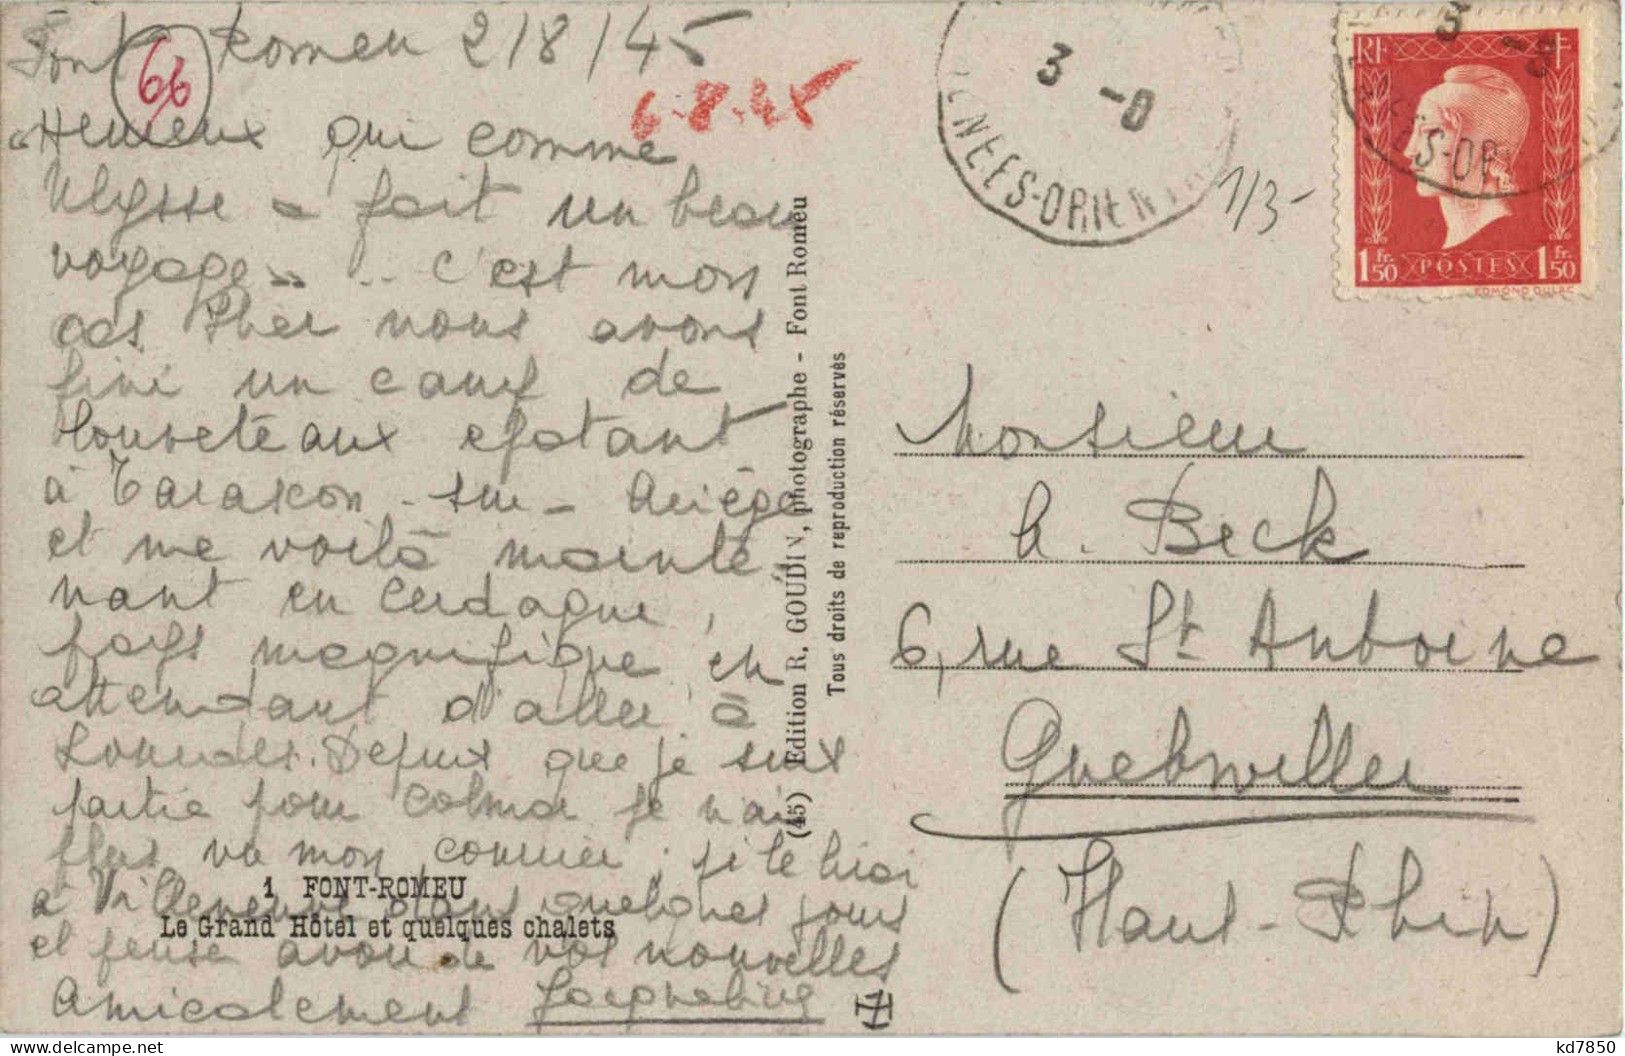 Font Romeu 2/8/45
66
6-8-45
"Heureux qui comme
Ulysse a fait un beau
voyage... c'est mon
cas. Hier nous avons
fini un camp de
louveteaux épatant
à Tarascon-sur-Ariège
et me voilà mainte-
nant en Cerdagne,
pays magnifique, en
attendant d'aller à
Lourdes. Depuis que je suis
partie pour Colmar je n'ai
plus vu mon courrier, je le lirai
à Villeneuve dans quelques jours
et pense avoir de vos nouvelles
Amicalement Jacqueline
1 FONT-ROMEU
Le Grand Hôtel et quelques chalets
(45) Edition R. GOUDIN, photographe - Font Romeu
Tous droits de reproduction réservés
3 -8
ENEES-ORIENTA
1/3-
RF
3 -8
EES-OR
1Fr.50 POSTES 1Fr.50
EDMOND DULAC
Monsieur
A. Beck
6, rue St Antoine
Guebwiller
(Haut-Rhin)
kd7850